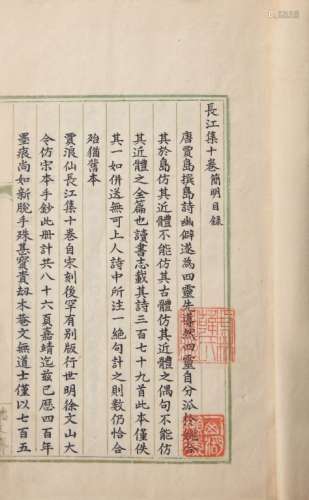 長江集十卷簡明目錄
唐賈島撰島詩幽僻遂為四靈先導然四靈自分派
其於島仿其近體不能仿其古體仿其近體之偶句不能仿
其近體之全篇也讀書志載其詩三百七十九首此本僅佚
其一如併送無可上人詩中所注一絕句計之則數仍恰合
殆猶舊本
賈浪仙長江集十卷自宋刻後罕有別版行世明徐文山大
令仿宋本手鈔此册計共八十六頁嘉靖迄茲已歷四百年
墨痕尚如新腕手珠甚寶貴刼木庵文無道士僅以七百五